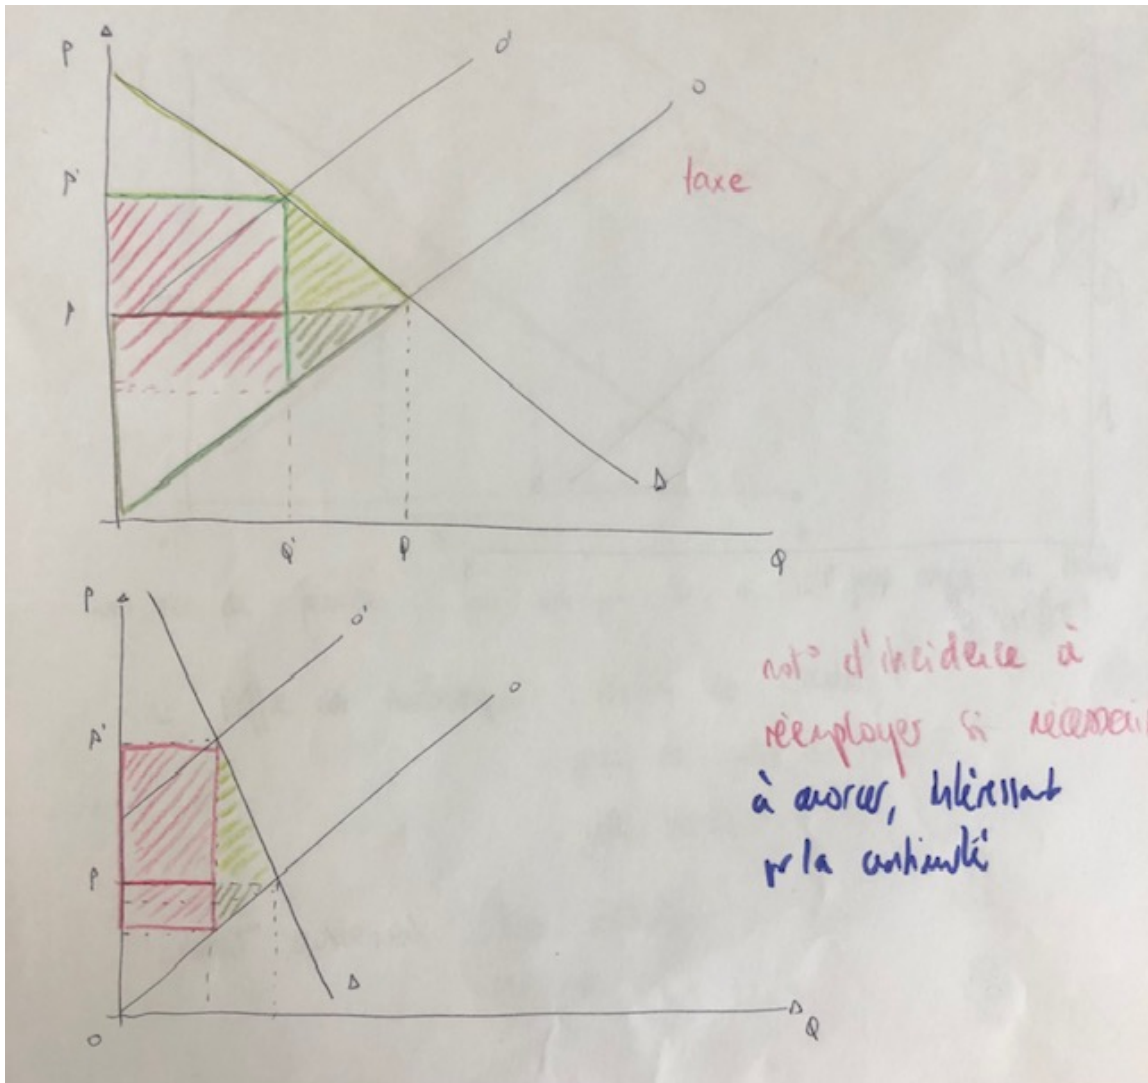 P
O'
O
taxe
P'
P
D
Q'
Q
Q
P
O'
O
P'
P
D
O
Q
not° d'incidence à
réemployer si nécessai
à amorcer, intéressant
pr la continuité